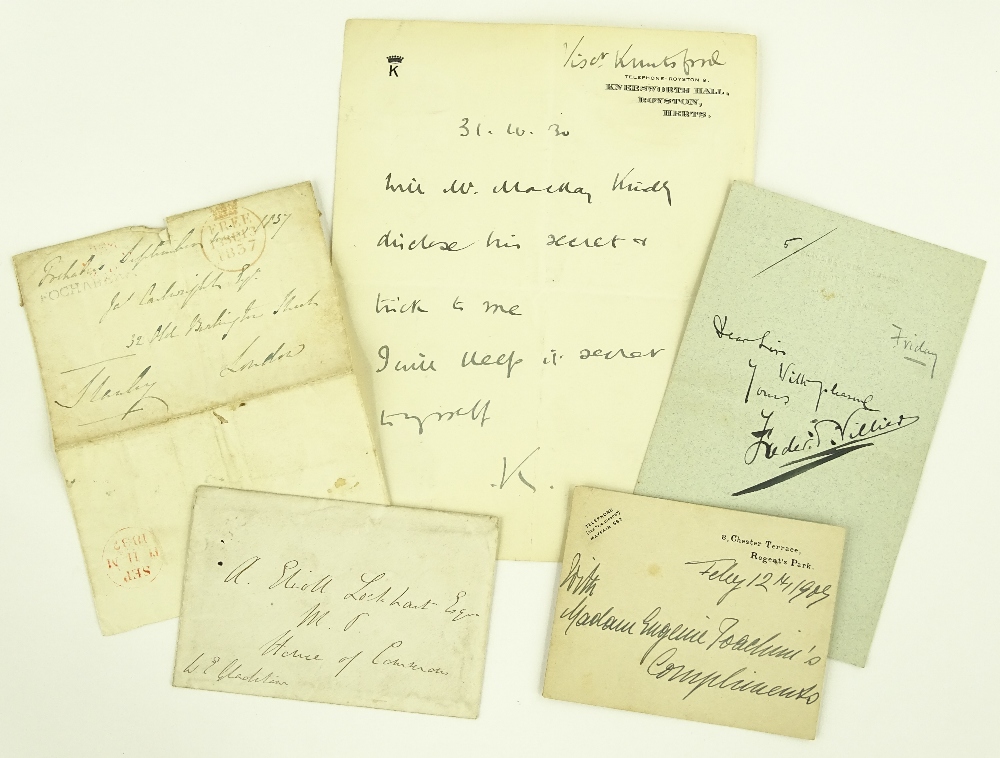 K
Visct Knutsford
TELEPHONE: ROYSTON 2.
KNEESWORTH HALL,
ROYSTON,
HERTS.
31. 10. 30
Will Mr. Mackay Kindly
disclose his secret &
trick to me
I will keep it secret
to myself
K.
Fochabers September 1837
FREE
1837
FOCHABERS
Jas Cartwright Esqr
32 Old Burlington Street
London
SEP
11
1837
5/
Friday
Dear Sirs
With pleasure
Yours
Frederic Villiers
A. Eliott Lockhart Esqr
M. P.
House of Commons
W E Gladstone
TELEPHONE
MAYFAIR
8, Chester Terrace,
Regent's Park.
Feby 12th 1909
With
Madam Eugenie Joachim's
Compliments